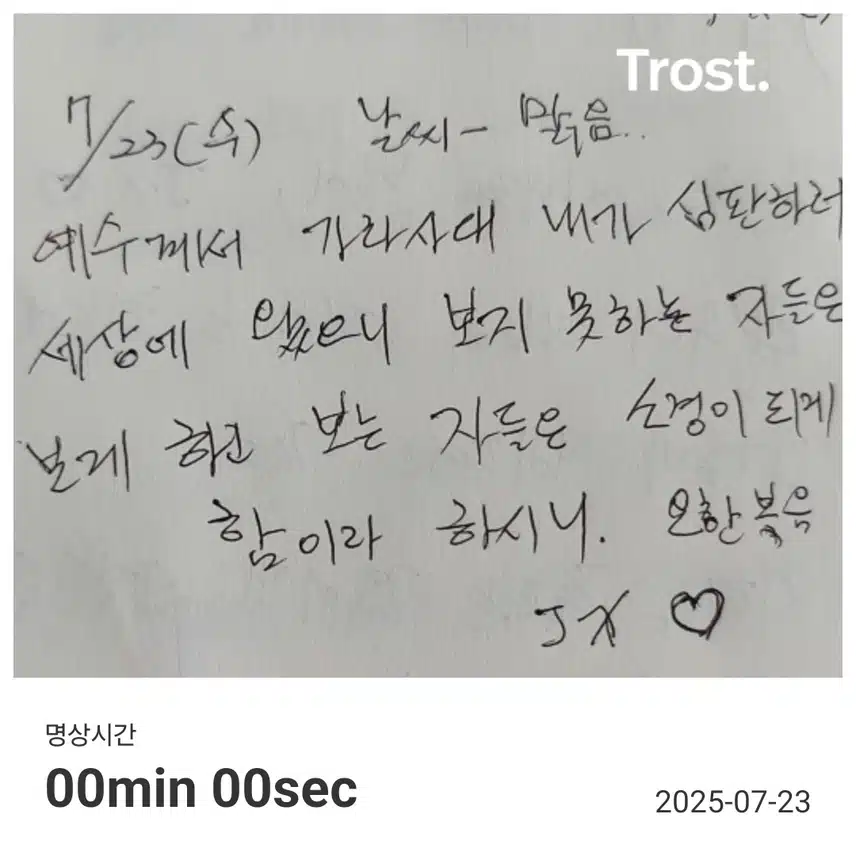 Trost.
7/23(수) 날씨- 맑음..
예수께서 가라사대 내가 심판하러
세상에 왔으니 보지 못하는 자들은
보게 하고 보는 자들은 소경이 되게
함이라 하시니. 요한복음
JX ♡
명상시간
00min 00sec
2025-07-23